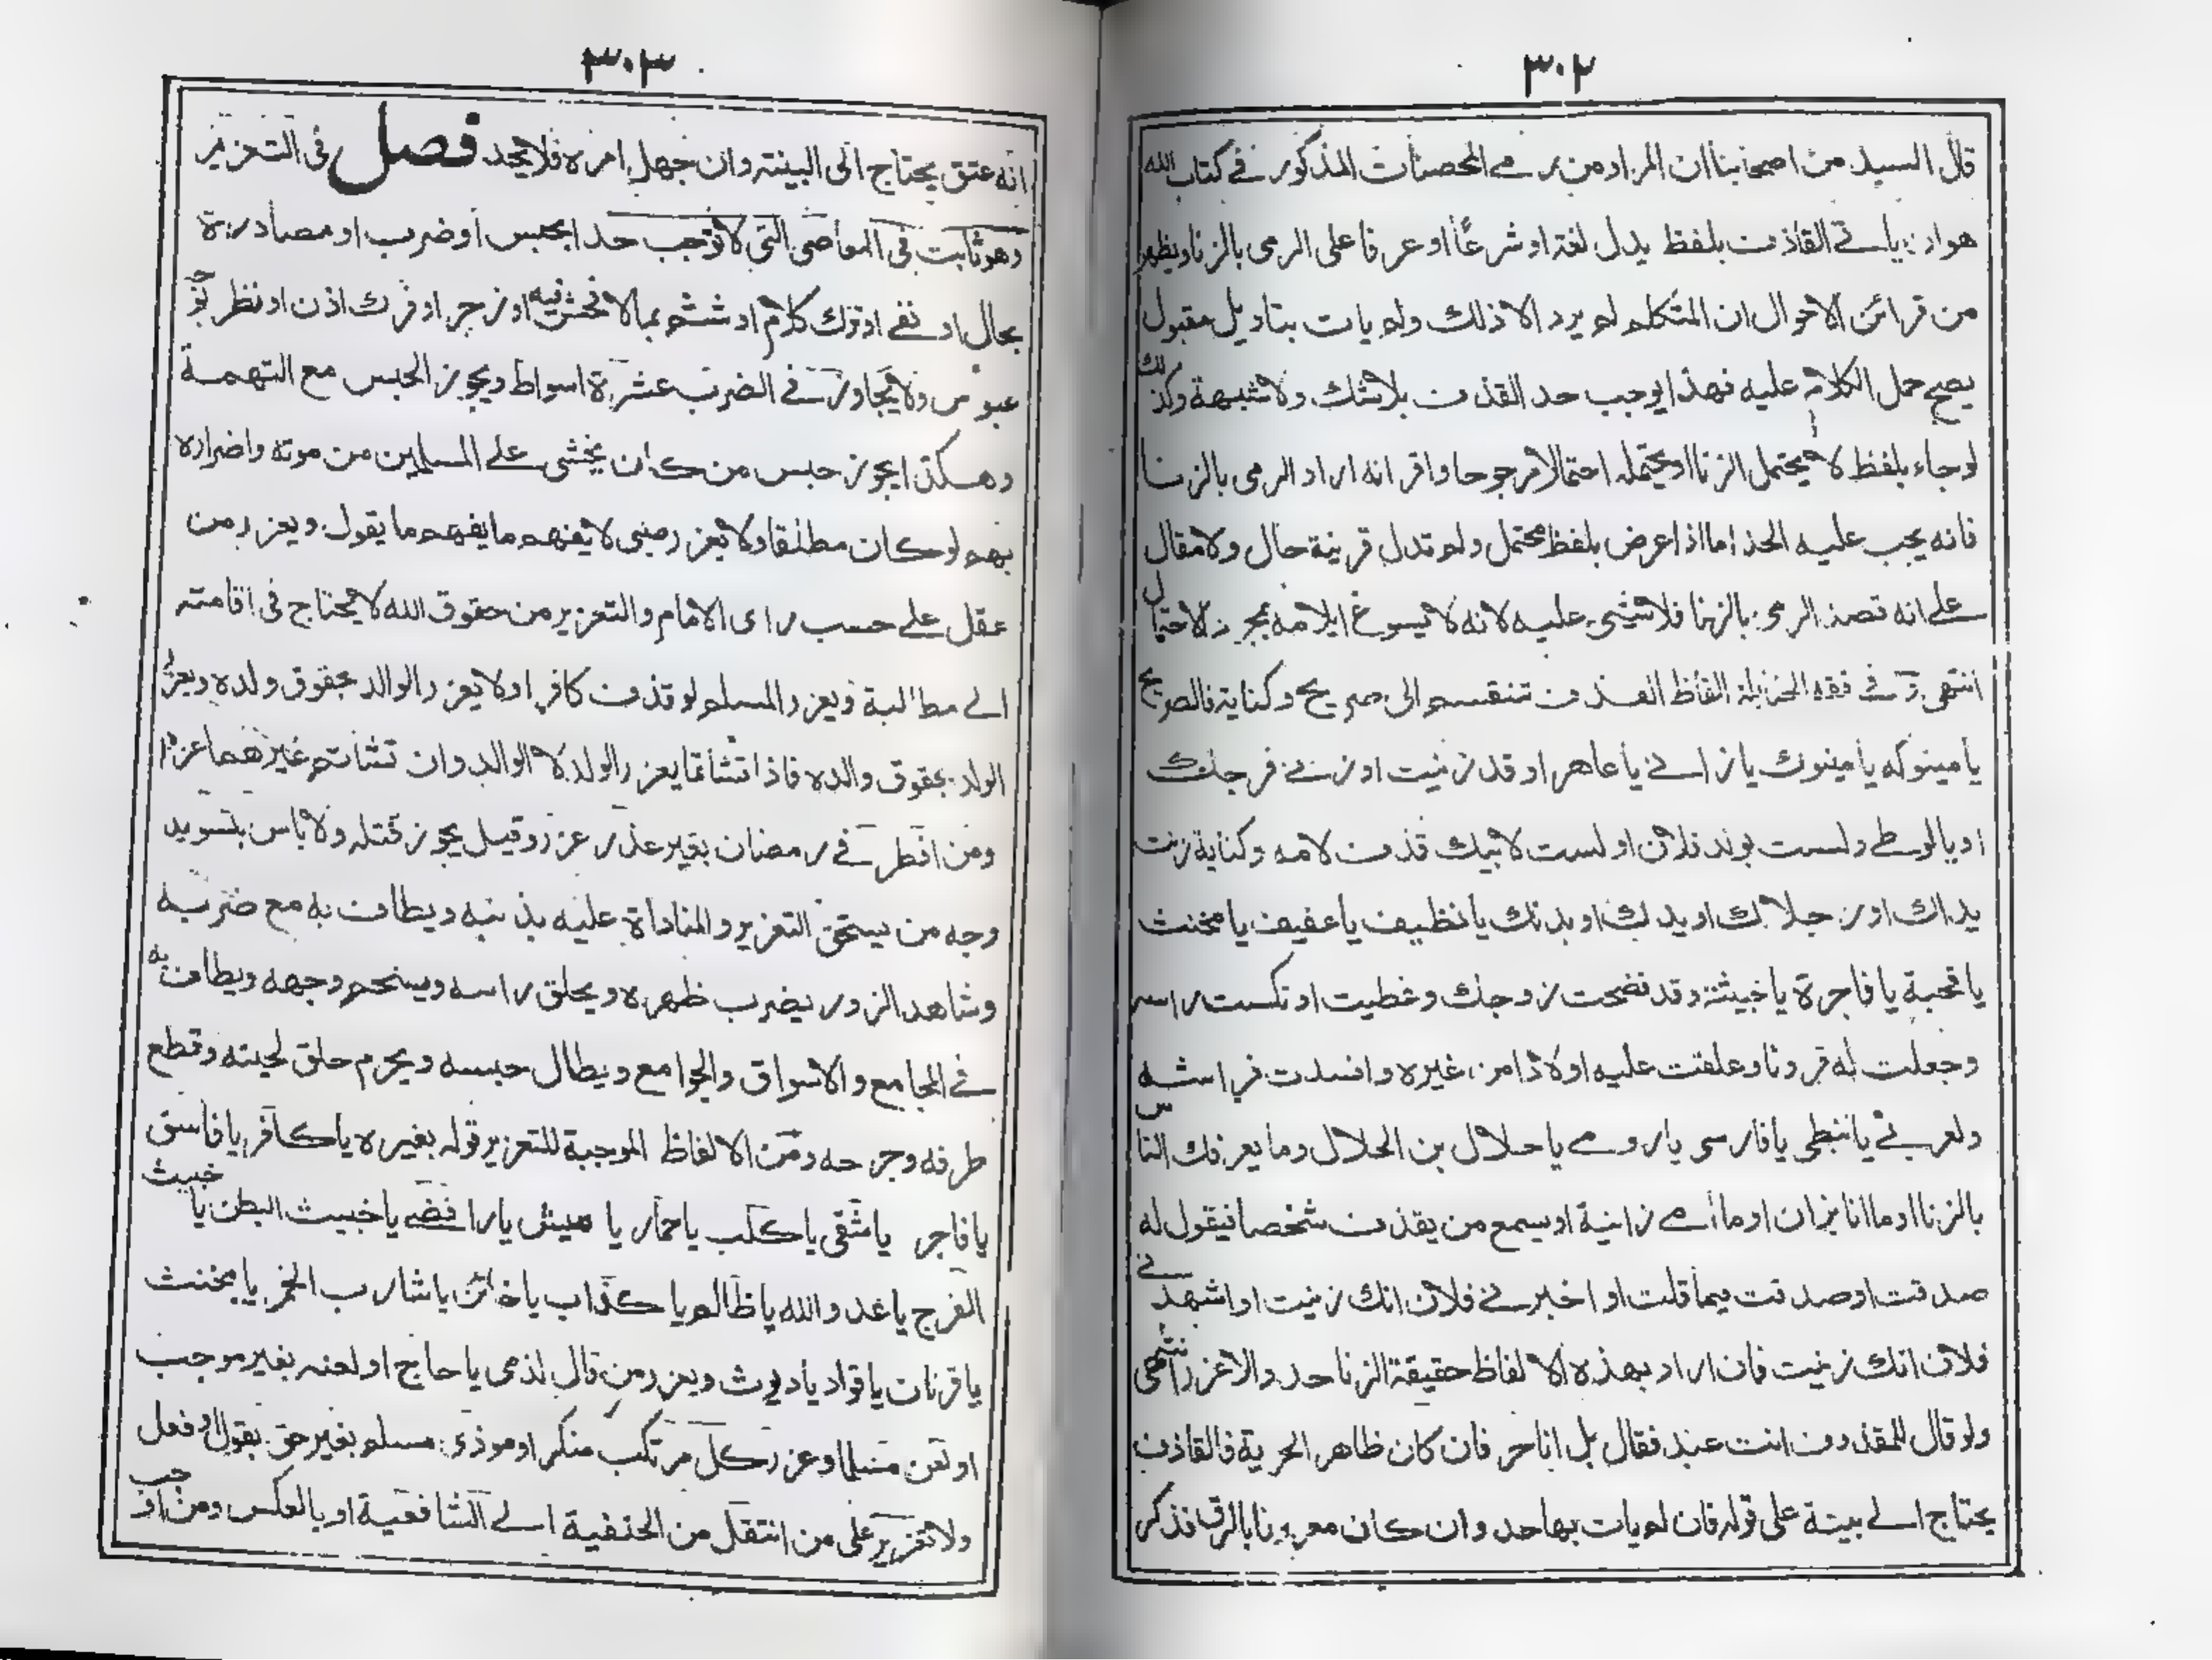 ٣٠٢
قال السيد من اصحابنا ان المراد من رمے المحصنات المذكور فے كتاب الله
هو ان ياتے القاذف بلفظ يدل لغة او شرعًا او عرفا على الرمى بالزنا ويظهر
من قرائن الاحوال ان المتكلم لم يرد الا ذلك ولم يات بتاويل مقبول
يصح حمل الكلام عليه فهذا يوجب حد القذف بلا شك ولا شبهة وكذلك
لو جاء بلفظ لا يحتمل الزنا او يحتمله احتمالا مرجوحا واقر انه اراد الرمى بالزنا
فانه يجب عليه الحد اما اذا عرض بلفظ محتمل ولم تدل قرينة حال ولا مقال
علے انه قصد الرمى بالزنا فلا شيئى عليه لانه لا يسوغ ايلامه بمجرد الاحتمال
انتهى و فے فقه الحنابلة الفاظ القذف تنقسم الى صريح وكناية فالصريح
يا منيوكه يا منيوك يا زانے يا عاهر او قد زنيت او زنے فرجك
او يا لوطے ولست بولد فلان او لست لابيك قذف لامه وكناية زنت
يداك او رجلاك او يدك او بدنك يا نظيف يا عفيف يا مخنث
يا قحبة يا فاجرة يا خبيثة وقد فضحت زوجك وغطيت او نكست راسه
وجعلت له قرونا وعلقت عليه اولادا من غيره وافسدت فراشه
ولعربے يا نبطى يا فارسى يا رومے يا حلال بن الحلال وما يعرفك الناس
بالزنا او ما انا بزان او ما أمے زانية او يسمع من يقذف شخصا فيقول له
صدقت او صدقت فيما قلت او اخبرنے فلان انك زنيت او اشهدنے
فلان انك زنيت فان اراد بهذه الالفاظ حقيقة الزنا حد والا عزر انتهى
ولو قال للمقذوف انت عبد فقال بل انا حر فان كان ظاهر الحرية فالقاذف
يحتاج الے بينة على قوله فان لم يات بها حد وان كان معروفا بالرق فذكر
٣٠٣
انه عتق يحتاج الى البينة وان جهل امره فلا يحد فصل فى التعزير
وهو ثابت فى المعاصى التى لا توجب حدا بحبس او ضرب او مصادرة
بمال او نفے او ترك كلام او شتم بما لا فحش فيه او زجر او فرك اذن او نظر بوجه
عبوس ولا يجاوز فے الضرب عشرة اسواط ويجوز الحبس مع التهمة
وهكذا يجوز حبس من كان يخشى علے المسلمين من موته واضراره
بهم لو كان مطلقا ولا يعزر صبى لا يفهم ما يفهم ما يقول ويعزر من
عقل علے حسب راى الامام والتعزير من حقوق الله لا يحتاج فى اقامته
الے مطالبة ويعزر المسلم لو قذف كافرا ولا يعزر الوالد بحقوق ولده ويعزر
الولد بحقوق والده فاذا تشاتما يعزر الولد لا الوالد وان تشاتم غيرهما عزرا
ومن افطر فے رمضان بغير عذر عزر وقيل يجوز قتله ولا باس بتسويد
وجه من يستحق التعزير والمناداة عليه بذنبه ويطاف به مع ضربه
وشاهد الزور يضرب ظهره ويحلق راسه ويسخم وجهه ويطاف به
فے المجامع والاسواق والجوامع ويطال حبسه ويحرم حلق لحيته وقطع
طرفه وجرحه ومن الالفاظ الموجبة للتعزير قوله بغيره يا كافر يا فاسق
يا فاجر يا شقى يا كلب يا حمار يا يا رافضے يا خبيث البطن يا خبيث
الفرج يا عدو الله يا ظالم يا كذاب يا خائن يا شارب الخمر يا مخنث
يا قرنان يا قواد يا ديوث ويعزر من قال لذمى يا حاج او لعنه بغير موجب
او لعن مسلما وعزر كل مرتكب منكر او موذى مسلم بغير حق بقول او فعل
ولا تعزير على من انتقل من الحنفية الے الشافعية او بالعكس ومن اوجب